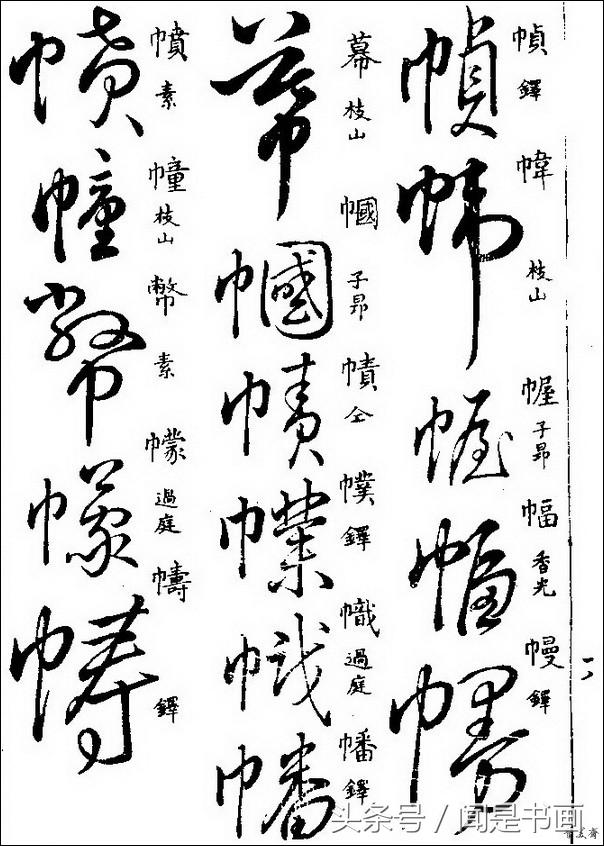 幀 鐸
幃 枝山
幄 子昂
幅 香光
幔 鐸
幕 枝山
幗 子昂
幘 仝
幞 鐸
幟 過庭
幡 鐸
幩 素
幢 枝山
幣 素
幪 過庭
幬 鐸
头条号 / 闻是书画